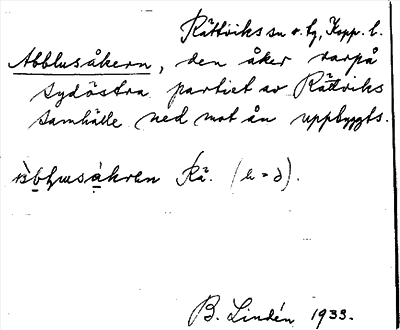 Rättviks sn o. tg, Kopp. l.
Abblusåkern, den åker varpå
sydöstra partiet av Rättviks
samhälle ned mot ån uppbyggts.
Rä. (h = ð).
B. Lindén 1933.